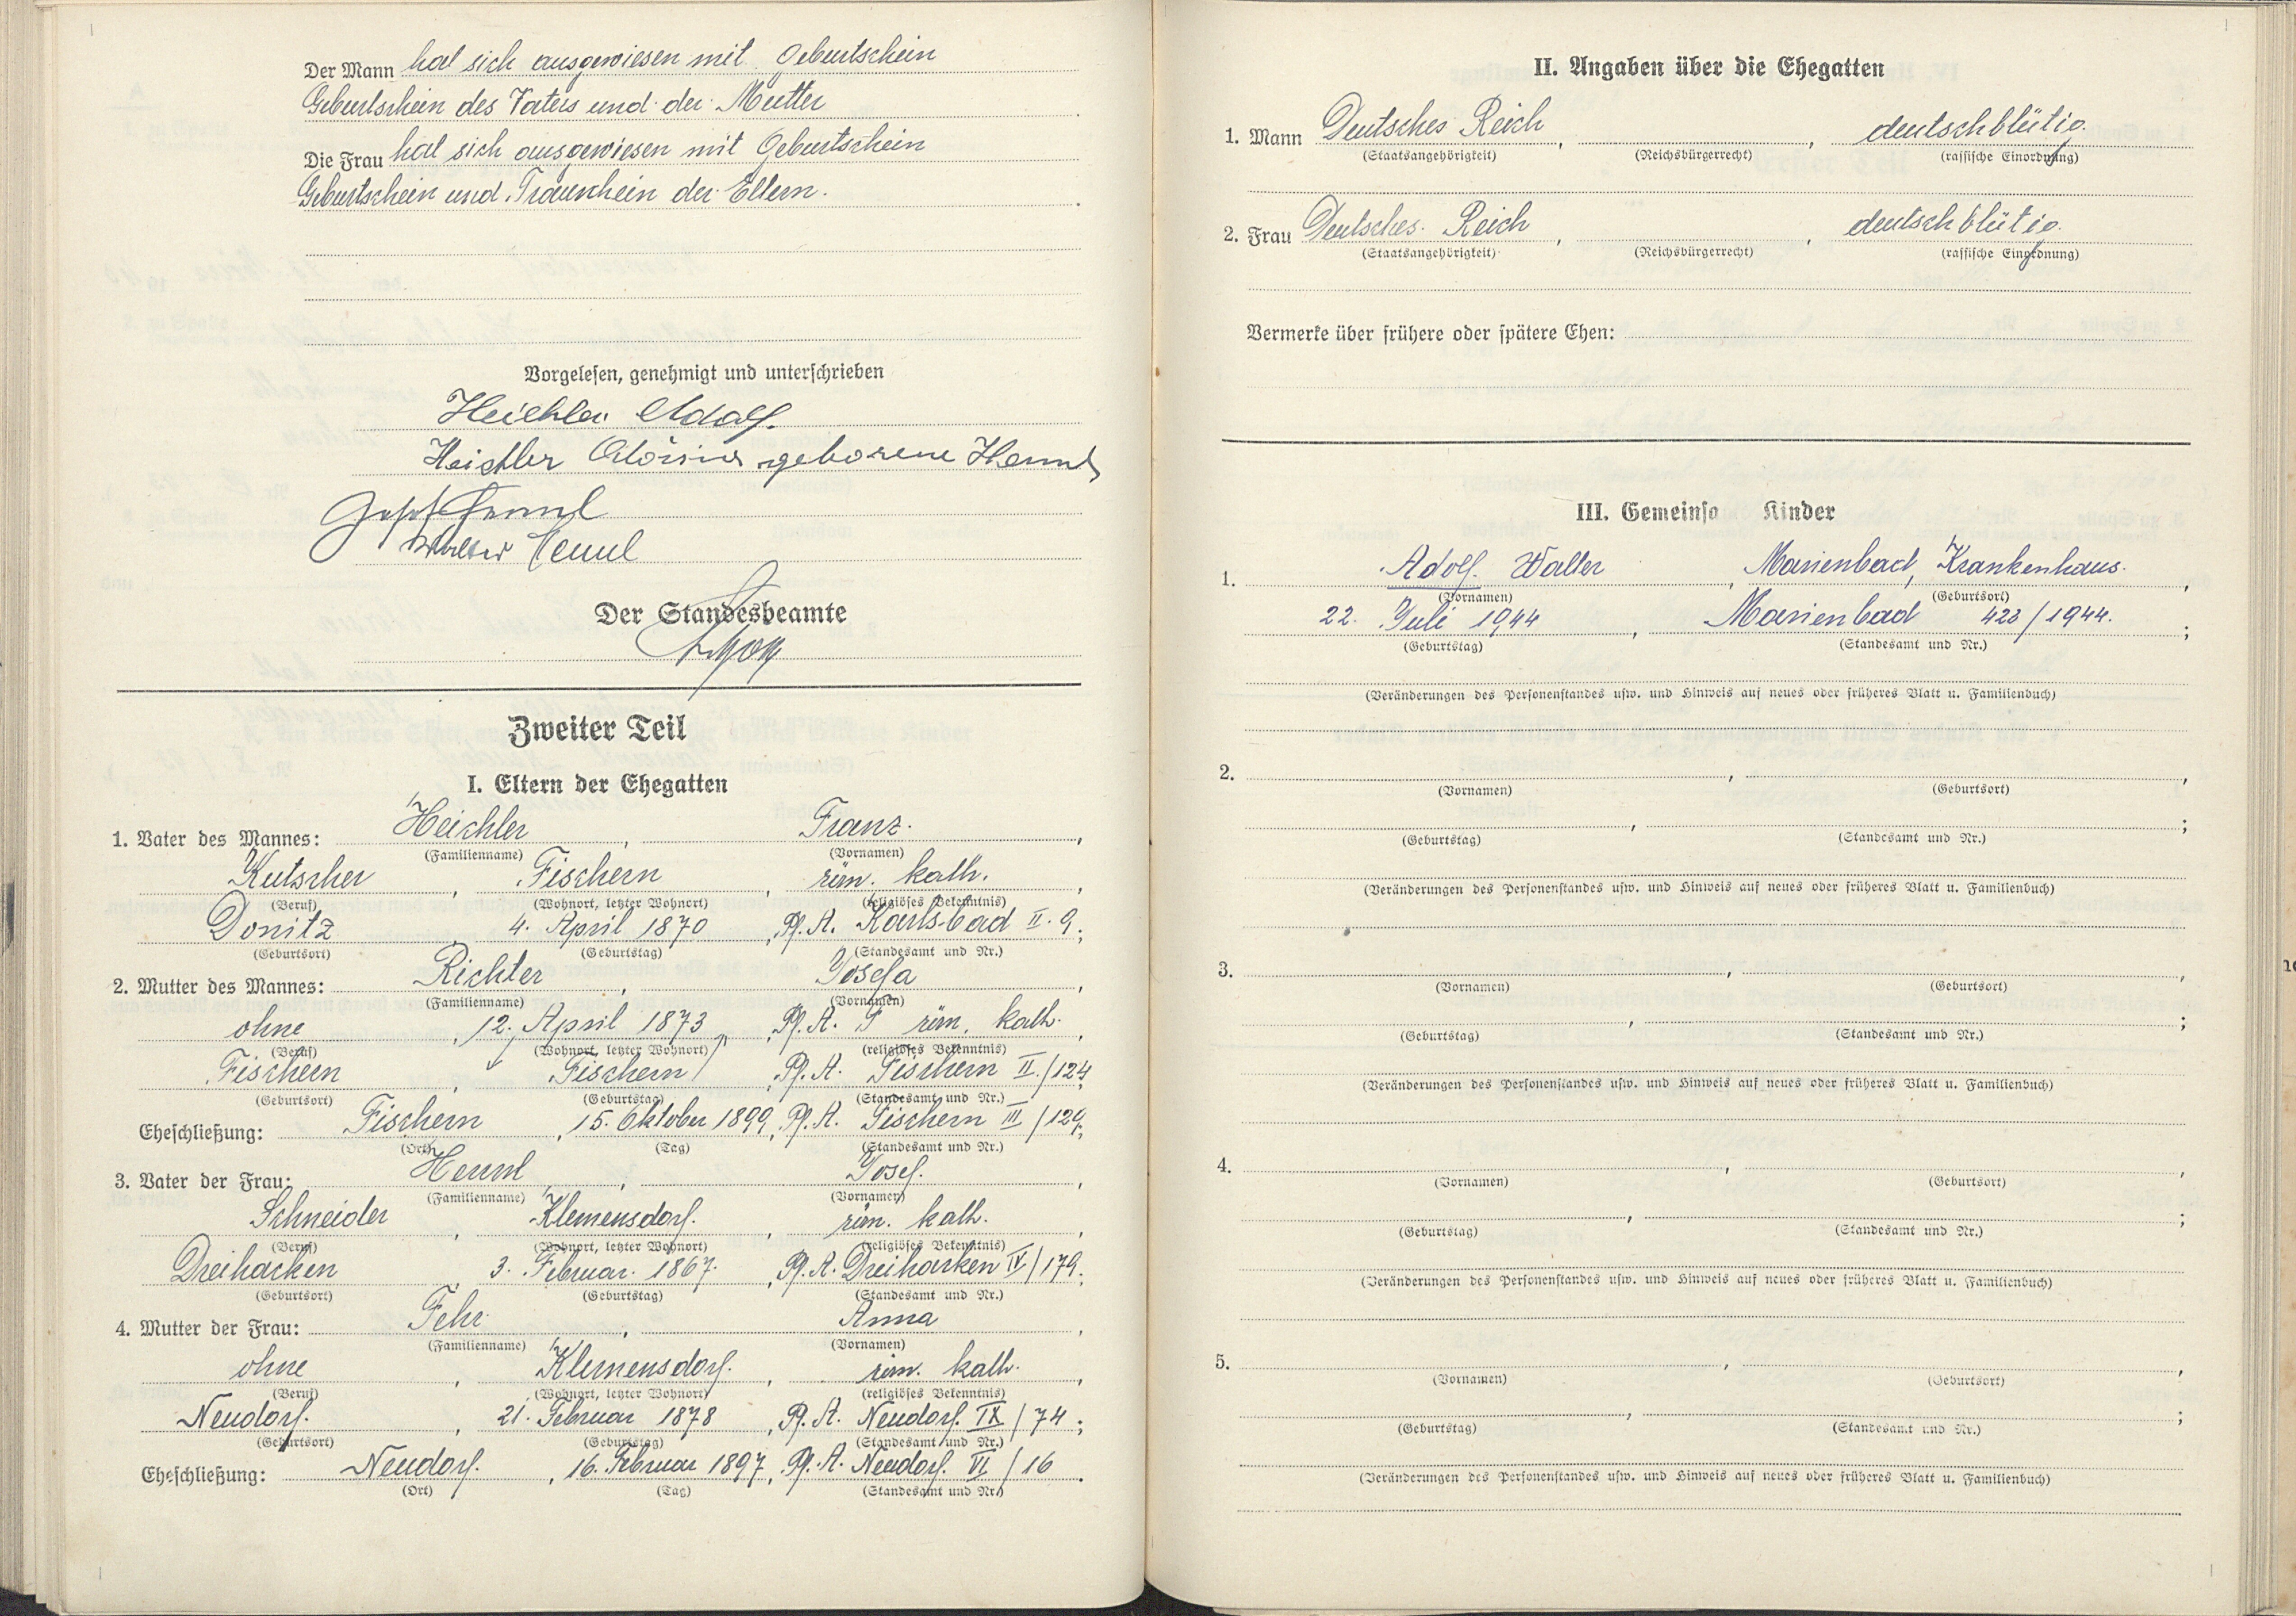 Der Mann hat sich ausgewiesen mit Geburtschein
Geburtschein des Vaters und der Mutter
Die Frau hat sich ausgewiesen mit Geburtschein
Geburtschein und Trauschein der Eltern.
Vorgelesen, genehmigt und unterschrieben
Heichler Adolf.
Heichler geborene
Josef
Walter
Der Standesbeamte
Zweiter Teil
I. Eltern der Ehegatten
1. Vater des Mannes: Heichler, Franz.,
(Familienname) (Vornamen)
Kutscher, Fischern, röm. kath.,
(Beruf) (Wohnort, letzter Wohnort) (religiöses Bekenntnis)
Donitz, 4. April 1870, Pf. A. Karlsbad II. 9;
(Geburtsort) (Geburtstag) (Standesamt und Nr.)
2. Mutter des Mannes: Richter, Josefa,
(Familienname) (Vornamen)
ohne, 12. April 1873, Pf. A. röm. kath.,
(Beruf) (Wohnort, letzter Wohnort) (religiöses Bekenntnis)
Fischern, Fischern, Pf. A. Fischern II./124;
(Geburtsort) (Geburtstag) (Standesamt und Nr.)
Eheschließung: Fischern, 15. Oktober 1899, Pf. A. Fischern III/129;
(Ort) (Tag) (Standesamt und Nr.)
3. Vater der Frau: Heuml, Josef.,
(Familienname) (Vornamen)
Schneider, Klemensdorf., röm. kath.,
(Beruf) (Wohnort, letzter Wohnort) (religiöses Bekenntnis)
Dreihacken, 3. Februar. 1867., Pf. A. Dreihacken IV/179;
(Geburtsort) (Geburtstag) (Standesamt und Nr.)
4. Mutter der Frau: Fehr, Anna,
(Familienname) (Vornamen)
ohne, Klemensdorf., röm. kath.,
(Beruf) (Wohnort, letzter Wohnort) (religiöses Bekenntnis)
Neudorf., 21. Februar 1878, Pf. A. Neudorf. IX/74;
(Geburtsort) (Geburtstag) (Standesamt und Nr.)
Eheschließung: Neudorf., 16. Februar 1897, Pf. A. Neudorf. VI/16.
(Ort) (Tag) (Standesamt und Nr.)
II. Angaben über die Ehegatten
1. Mann Deutsches Reich, , deutschblütig.
(Staatsangehörigkeit) (Reichsbürgerrecht) (rassische Einordnung)
2. Frau Deutsches Reich, , deutschblütig.
(Staatsangehörigkeit) (Reichsbürgerrecht) (rassische Einordnung)
Vermerke über frühere oder spätere Ehen:
III. Gemeinsa Kinder
1. Adolf Walter, Marienbad, Krankenhaus.,
(Vornamen) (Geburtsort)
22. Juli 1944, Marienbad 423/1944.;
(Geburtstag) (Standesamt und Nr.)
(Veränderungen des Personenstandes usw. und Hinweis auf neues oder früheres Blatt u. Familienbuch)
2. , ,
(Vornamen) (Geburtsort)
, ;
(Geburtstag) (Standesamt und Nr.)
(Veränderungen des Personenstandes usw. und Hinweis auf neues oder früheres Blatt u. Familienbuch)
3. , ,
(Vornamen) (Geburtsort)
, ;
(Geburtstag) (Standesamt und Nr.)
(Veränderungen des Personenstandes usw. und Hinweis auf neues oder früheres Blatt u. Familienbuch)
4. , ,
(Vornamen) (Geburtsort)
, ;
(Geburtstag) (Standesamt und Nr.)
(Veränderungen des Personenstandes usw. und Hinweis auf neues oder früheres Blatt u. Familienbuch)
5. , ,
(Vornamen) (Geburtsort)
, ;
(Geburtstag) (Standesamt und Nr.)
(Veränderungen des Personenstandes usw. und Hinweis auf neues oder früheres Blatt u. Familienbuch)